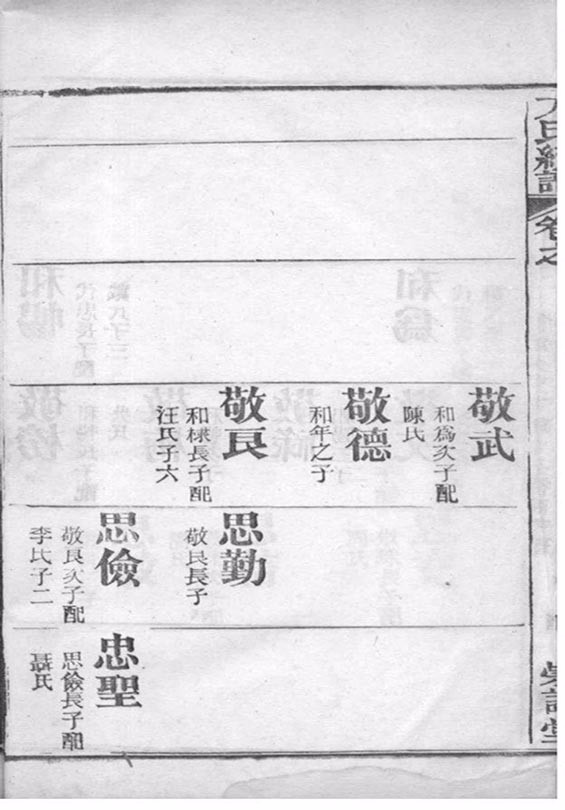 卷之
敬武
和爲次子配
陳氏
敬德
和年之子
敬良
和棣長子配
汪氏子六
思勤
敬良長子
思儉
敬良次子配
李氏子二
忠聖
思儉長子配
聶氏